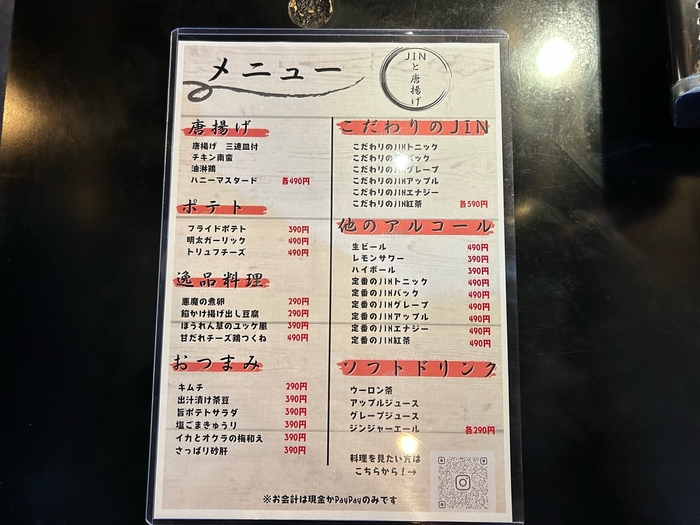 メニュー
JIN
と
唐
揚
げ
唐揚げ
唐揚げ 三連皿付
チキン南蛮
油淋鶏
ハニーマスタード 各490円
ポテト
フライドポテト 390円
明太ガーリック 490円
トリュフチーズ 490円
逸品料理
悪魔の煮卵 290円
餡かけ揚げ出し豆腐 290円
ほうれん草のユッケ風 390円
甘だれチーズ鶏つくね 490円
おつまみ
キムチ 290円
出汁漬け茶豆 390円
旨ポテトサラダ 390円
塩ごまきゅうり 390円
イカとオクラの梅和え 390円
さっぱり砂肝 390円
こだわりのJIN
こだわりのJINトニック
こだわりのJINバック
こだわりのJINグレープ
こだわりのJINアップル
こだわりのJINエナジー
こだわりのJIN紅茶 各590円
他のアルコール
生ビール 490円
レモンサワー 390円
ハイボール 390円
定番のJINトニック 490円
定番のJINバック 490円
定番のJINグレープ 490円
定番のJINアップル 490円
定番のJINエナジー 490円
定番のJIN紅茶 490円
ソフトドリンク
ウーロン茶
アップルジュース
グレープジュース
ジンジャーエール 各290円
料理を見たい方は
こちらから!→
※お会計は現金かPayPayのみです